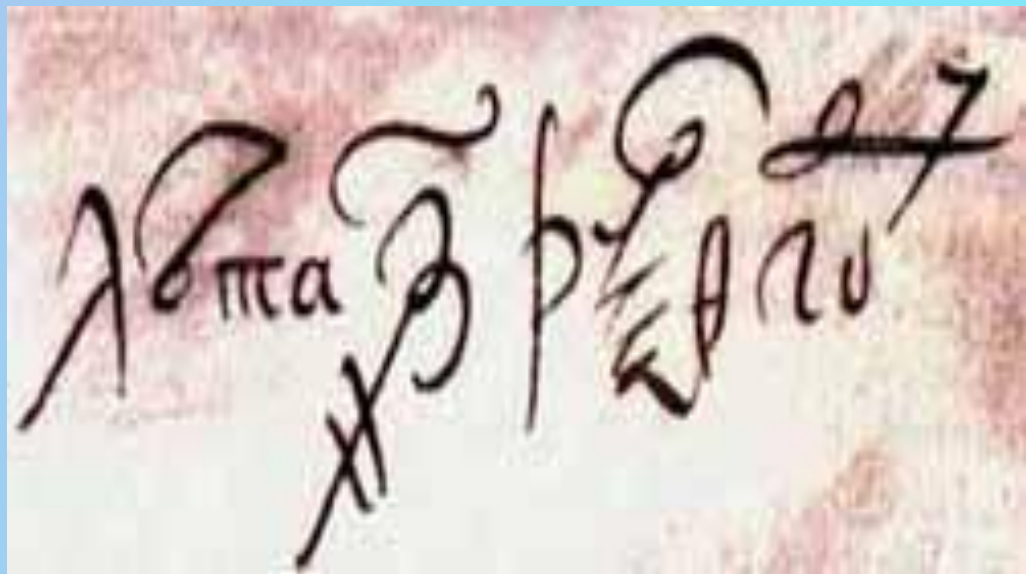 лѣта ҂з҃рѯѳ году